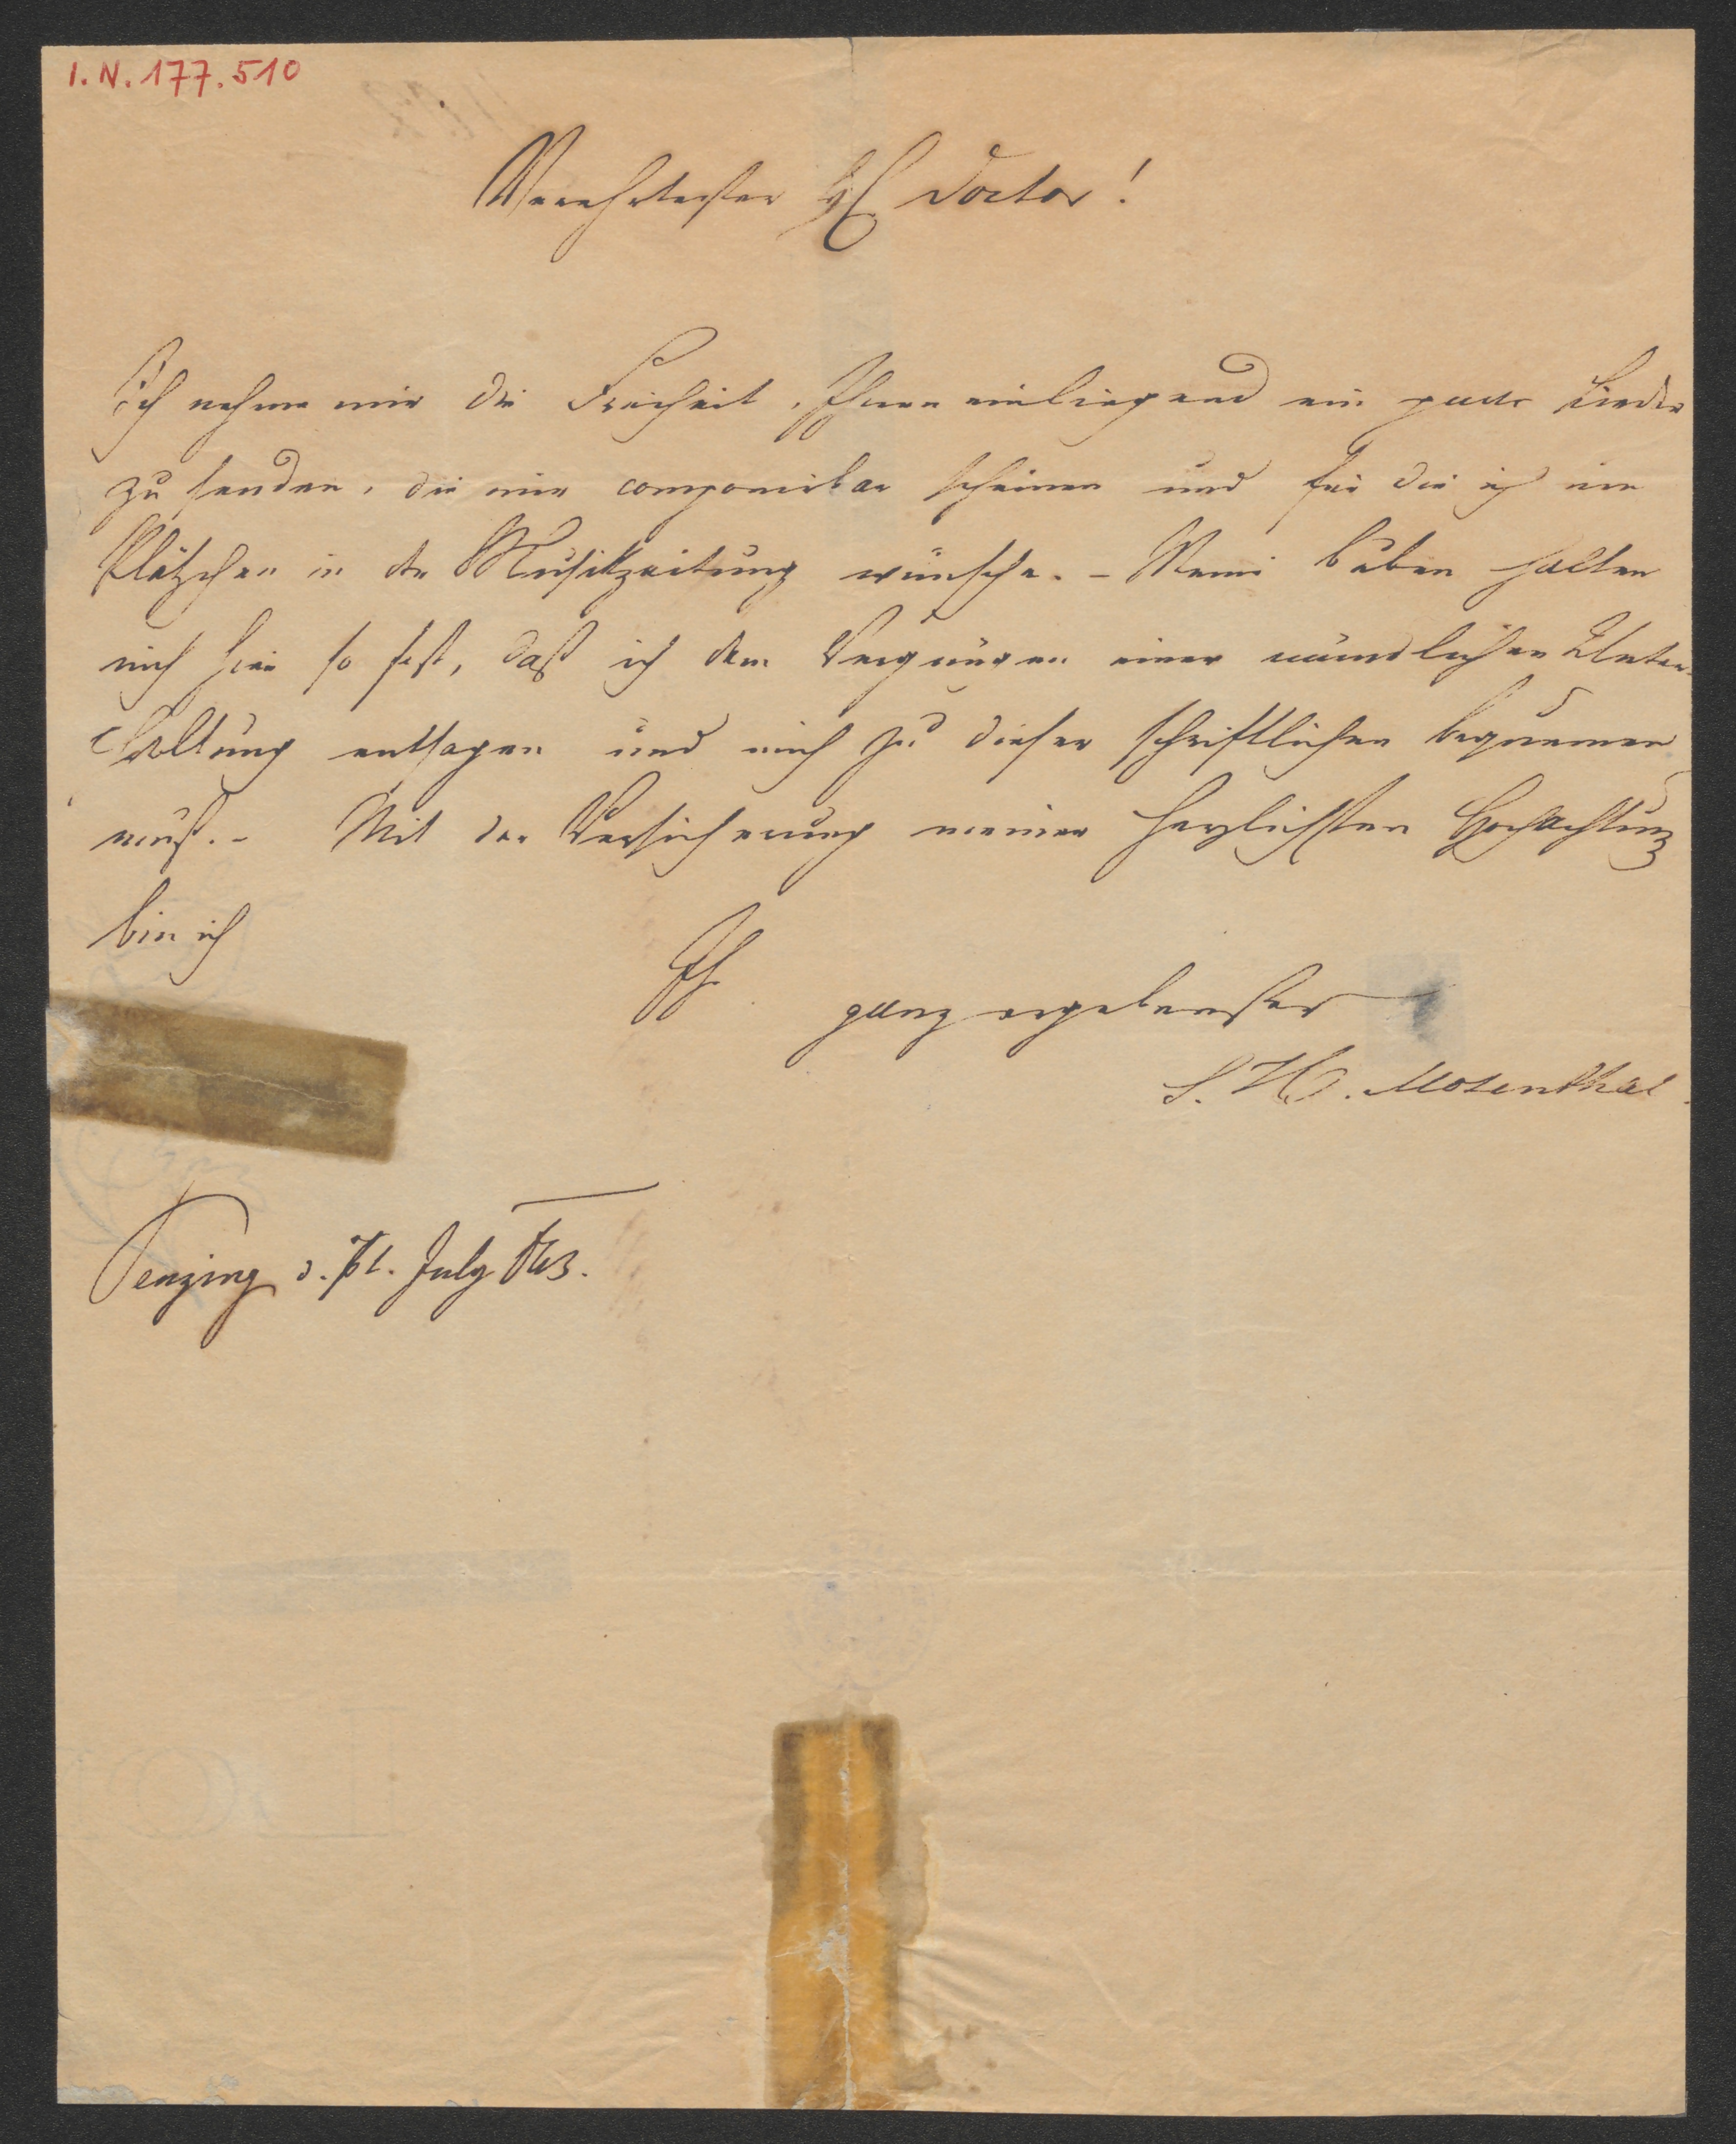 I. N. 177.510
Verehrtester H. Doctor!
Ich nehme mir die Freiheit, Ihnen einliegend ein paar Lieder
zu senden, die mir componirbar scheinen und für die ich ein
Plätzchen in der Musikzeitung wünsche. – Meine Buben halten
mich hier so fest, daß ich dem Vergnügen einer mündlichen Unter-
haltung entsagen und mich zu dieser schriftlichen bequemen
muß. – Mit der Versicherung meiner herzlichsten Hochachtung
bin ich
Ihr
ganz ergebenster
S. H. Mosenthal.
Penzing d. July